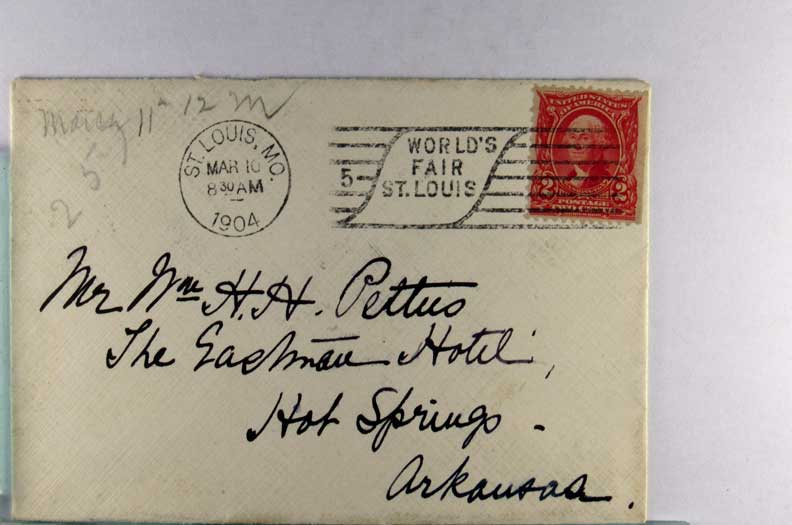 March 11th 12 M
5
2
ST. LOUIS, MO.
MAR 10
8 30 AM
1904
5
WORLD'S
FAIR
ST. LOUIS
UNITED STATES
OF AMERICA
2 2
POSTAGE
Mr Wm H. H. Pettus
The Eastman Hotel,
Hot Springs -
Arkansas.